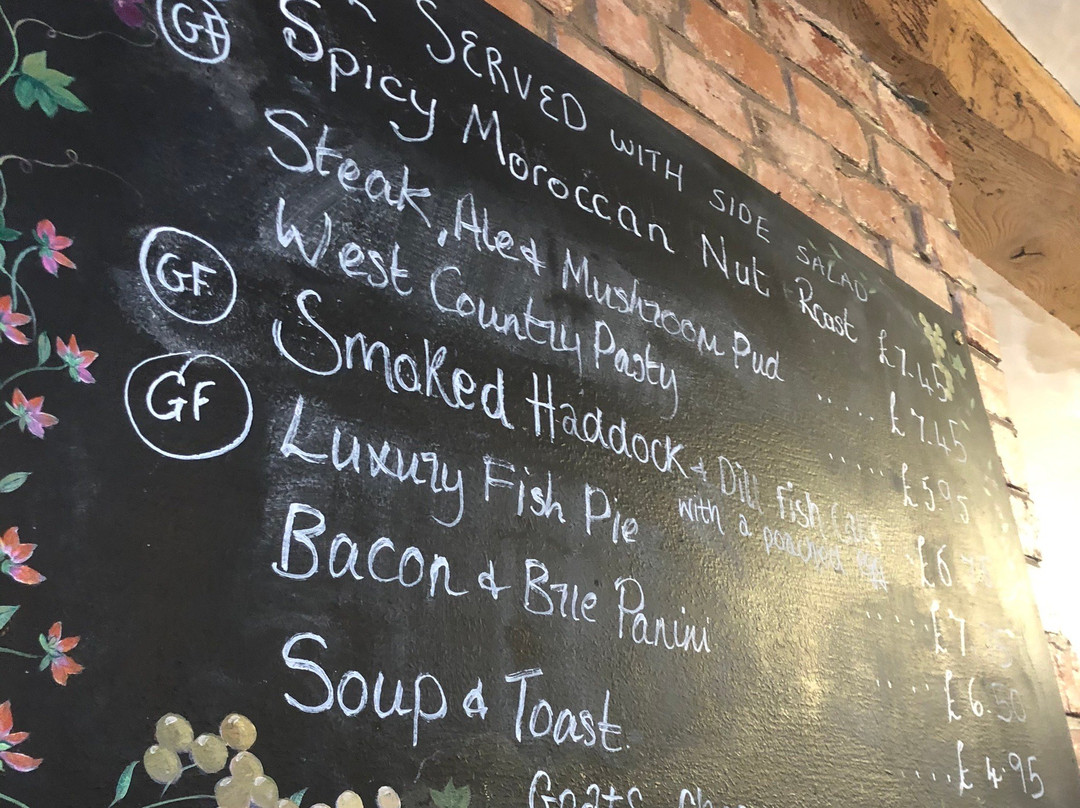 SERVED WITH SIDE SALAD
GF Spicy Moroccan Nut Roast £7.45
Steak, Ale & Mushroom Pud ...... £7.45
West Country Pasty ...... £5.95
GF Smoked Haddock & Dill Fish Cake £6
with a poached egg
GF Luxury Fish Pie ...... £7
Bacon & Brie Panini ...... £6.50
Soup & Toast ..... £4.95
Goats